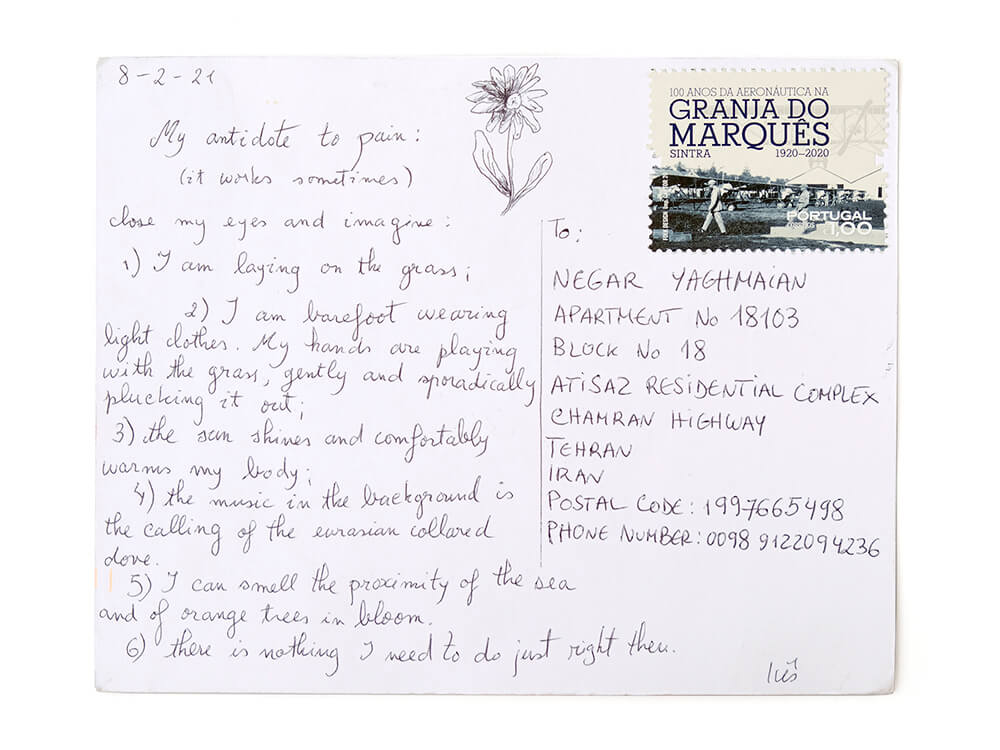 8-2-21
My antidote to pain:
(it works sometimes)
close my eyes and imagine:
1) I am laying on the grass;
2) I am barefoot wearing
light clothes. My hands are playing
with the grass, gently and sporadically
plucking it out;
3) the sun shines and comfortably
warms my body;
4) the music in the background is
the calling of the eurasian collared
dove.
5) I can smell the proximity of the sea
and of orange trees in bloom.
6) there is nothing I need to do just right then.
Inês
100 ANOS DA AERONÁUTICA NA
GRANJA DO
MARQUÊS
SINTRA 1920–2020
PORTUGAL
1,00
To:
NEGAR YAGHMAIAN
APARTMENT No 18103
BLOCK No 18
ATISAZ RESIDENTIAL COMPLEX
CHAMRAN HIGHWAY
TEHRAN
IRAN
POSTAL CODE: 1997665498
PHONE NUMBER: 0098 9122094236